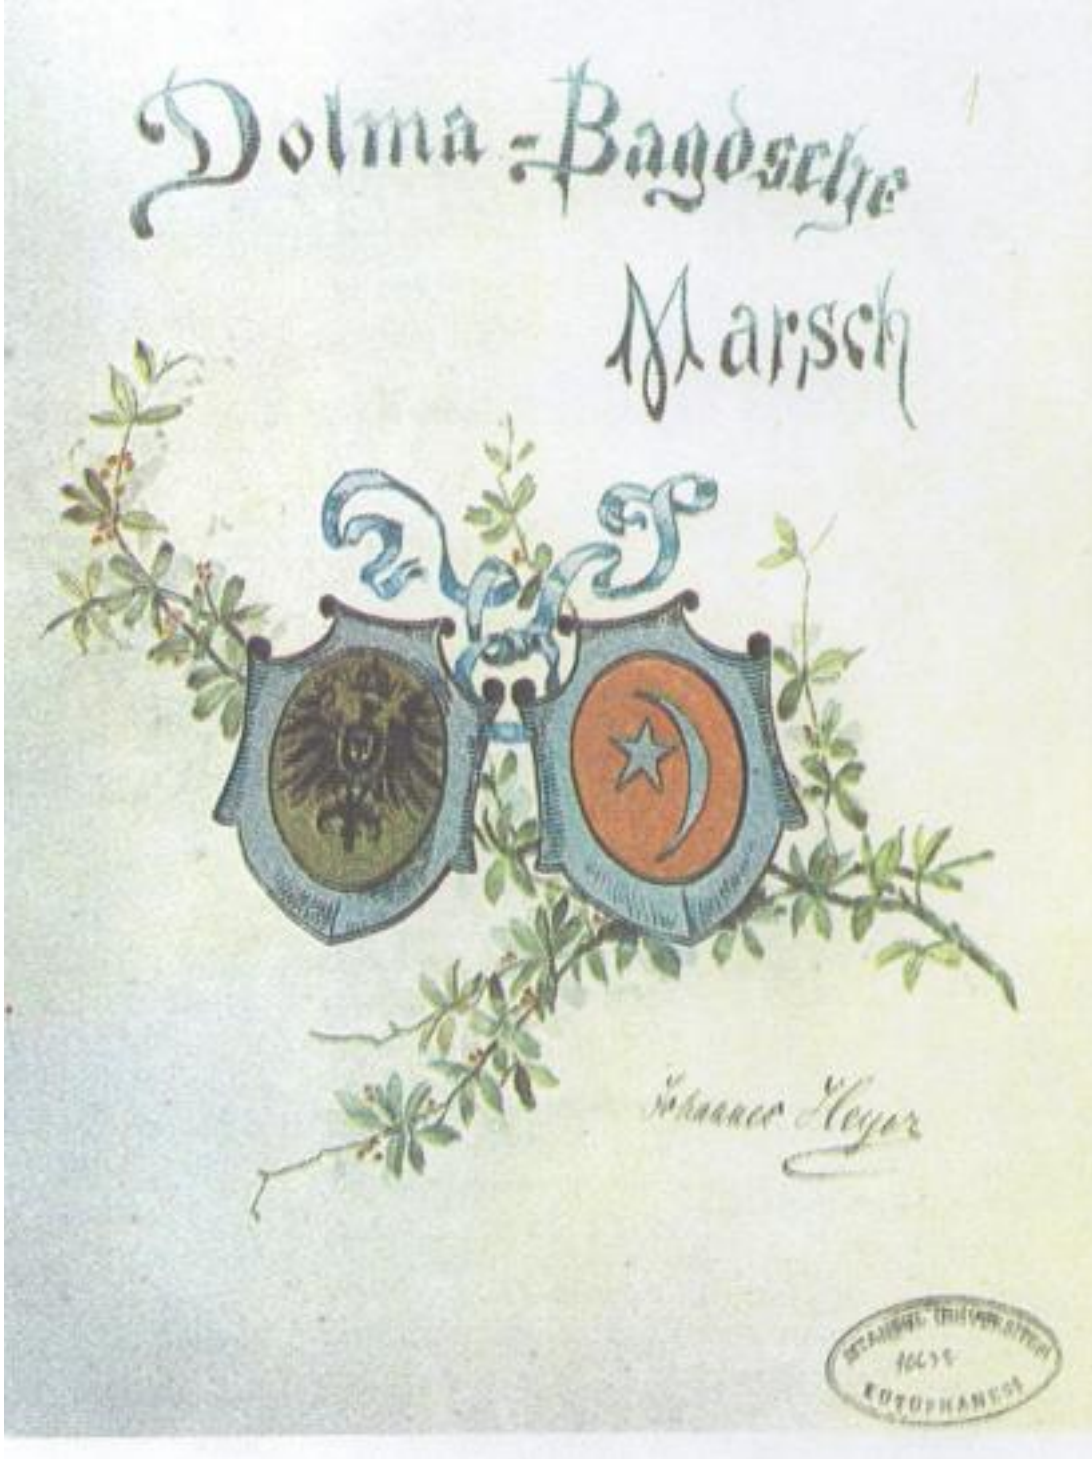 Dolma-Bagdsche
Marsch
Johannes Heyer
ISTANBUL ÜNİVERSİTESİ
KÜTÜPHANESİ